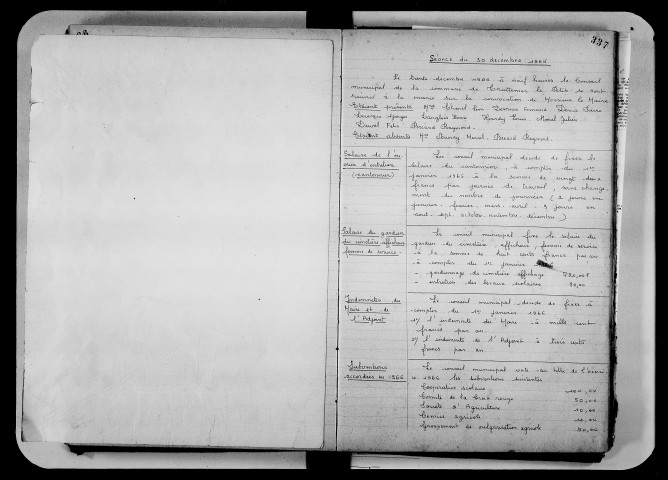 337
Séance du 30 décembre 1966
Le trente décembre 1966 à neuf heures le Conseil
municipal de la commune de le Petit
réuni à la mairie sur la convocation de Monsieur le Maire
Etaient présents Mrs Léon Denis
Georges Langlois Hardy Louis Morel Julien
Duval Félix Raymond
Etaient absents Mr
Salaire de l'ou-
vrier d'entretien
(cantonnier)
Le conseil municipal décide de fixer le
salaire du cantonnier, à compter du 1er
janvier 1966 à la somme de vingt deux
francs par journée de travail, sans change-
ment du nombre de journées (2 jours en
janvier - février - mars - avril - 3 jours en
août - sept. octobre. novembre. décembre.)
Salaire du gardien
du cimetière afficheur
femme de service -
Le conseil municipal fixe le salaire du
gardien du cimetière, afficheur, femme de service
à la somme de huit cents francs par an
à compter du 1er janvier
- gardiennage du cimetière affichage
- entretien des locaux scolaires
Indemnités du
Maire et de
l'Adjoint
Le conseil municipal décide de fixer à
compter du 1er janvier 1966
1°/ l'indemnité du Maire à mille cent
francs par an
2°/ l'indemnité de l'Adjoint à trois cents
francs par an.
Subventions
accordées en 1966
Le conseil municipal vote au titre de l'exerci-
ce 1966 les subventions suivantes
Coopérative scolaire 100,00
Comité de la Croix rouge 50,00
Société d'Agriculture 10,00
Comice agricole 10,00
Groupement de vulgarisation agricole 50,00